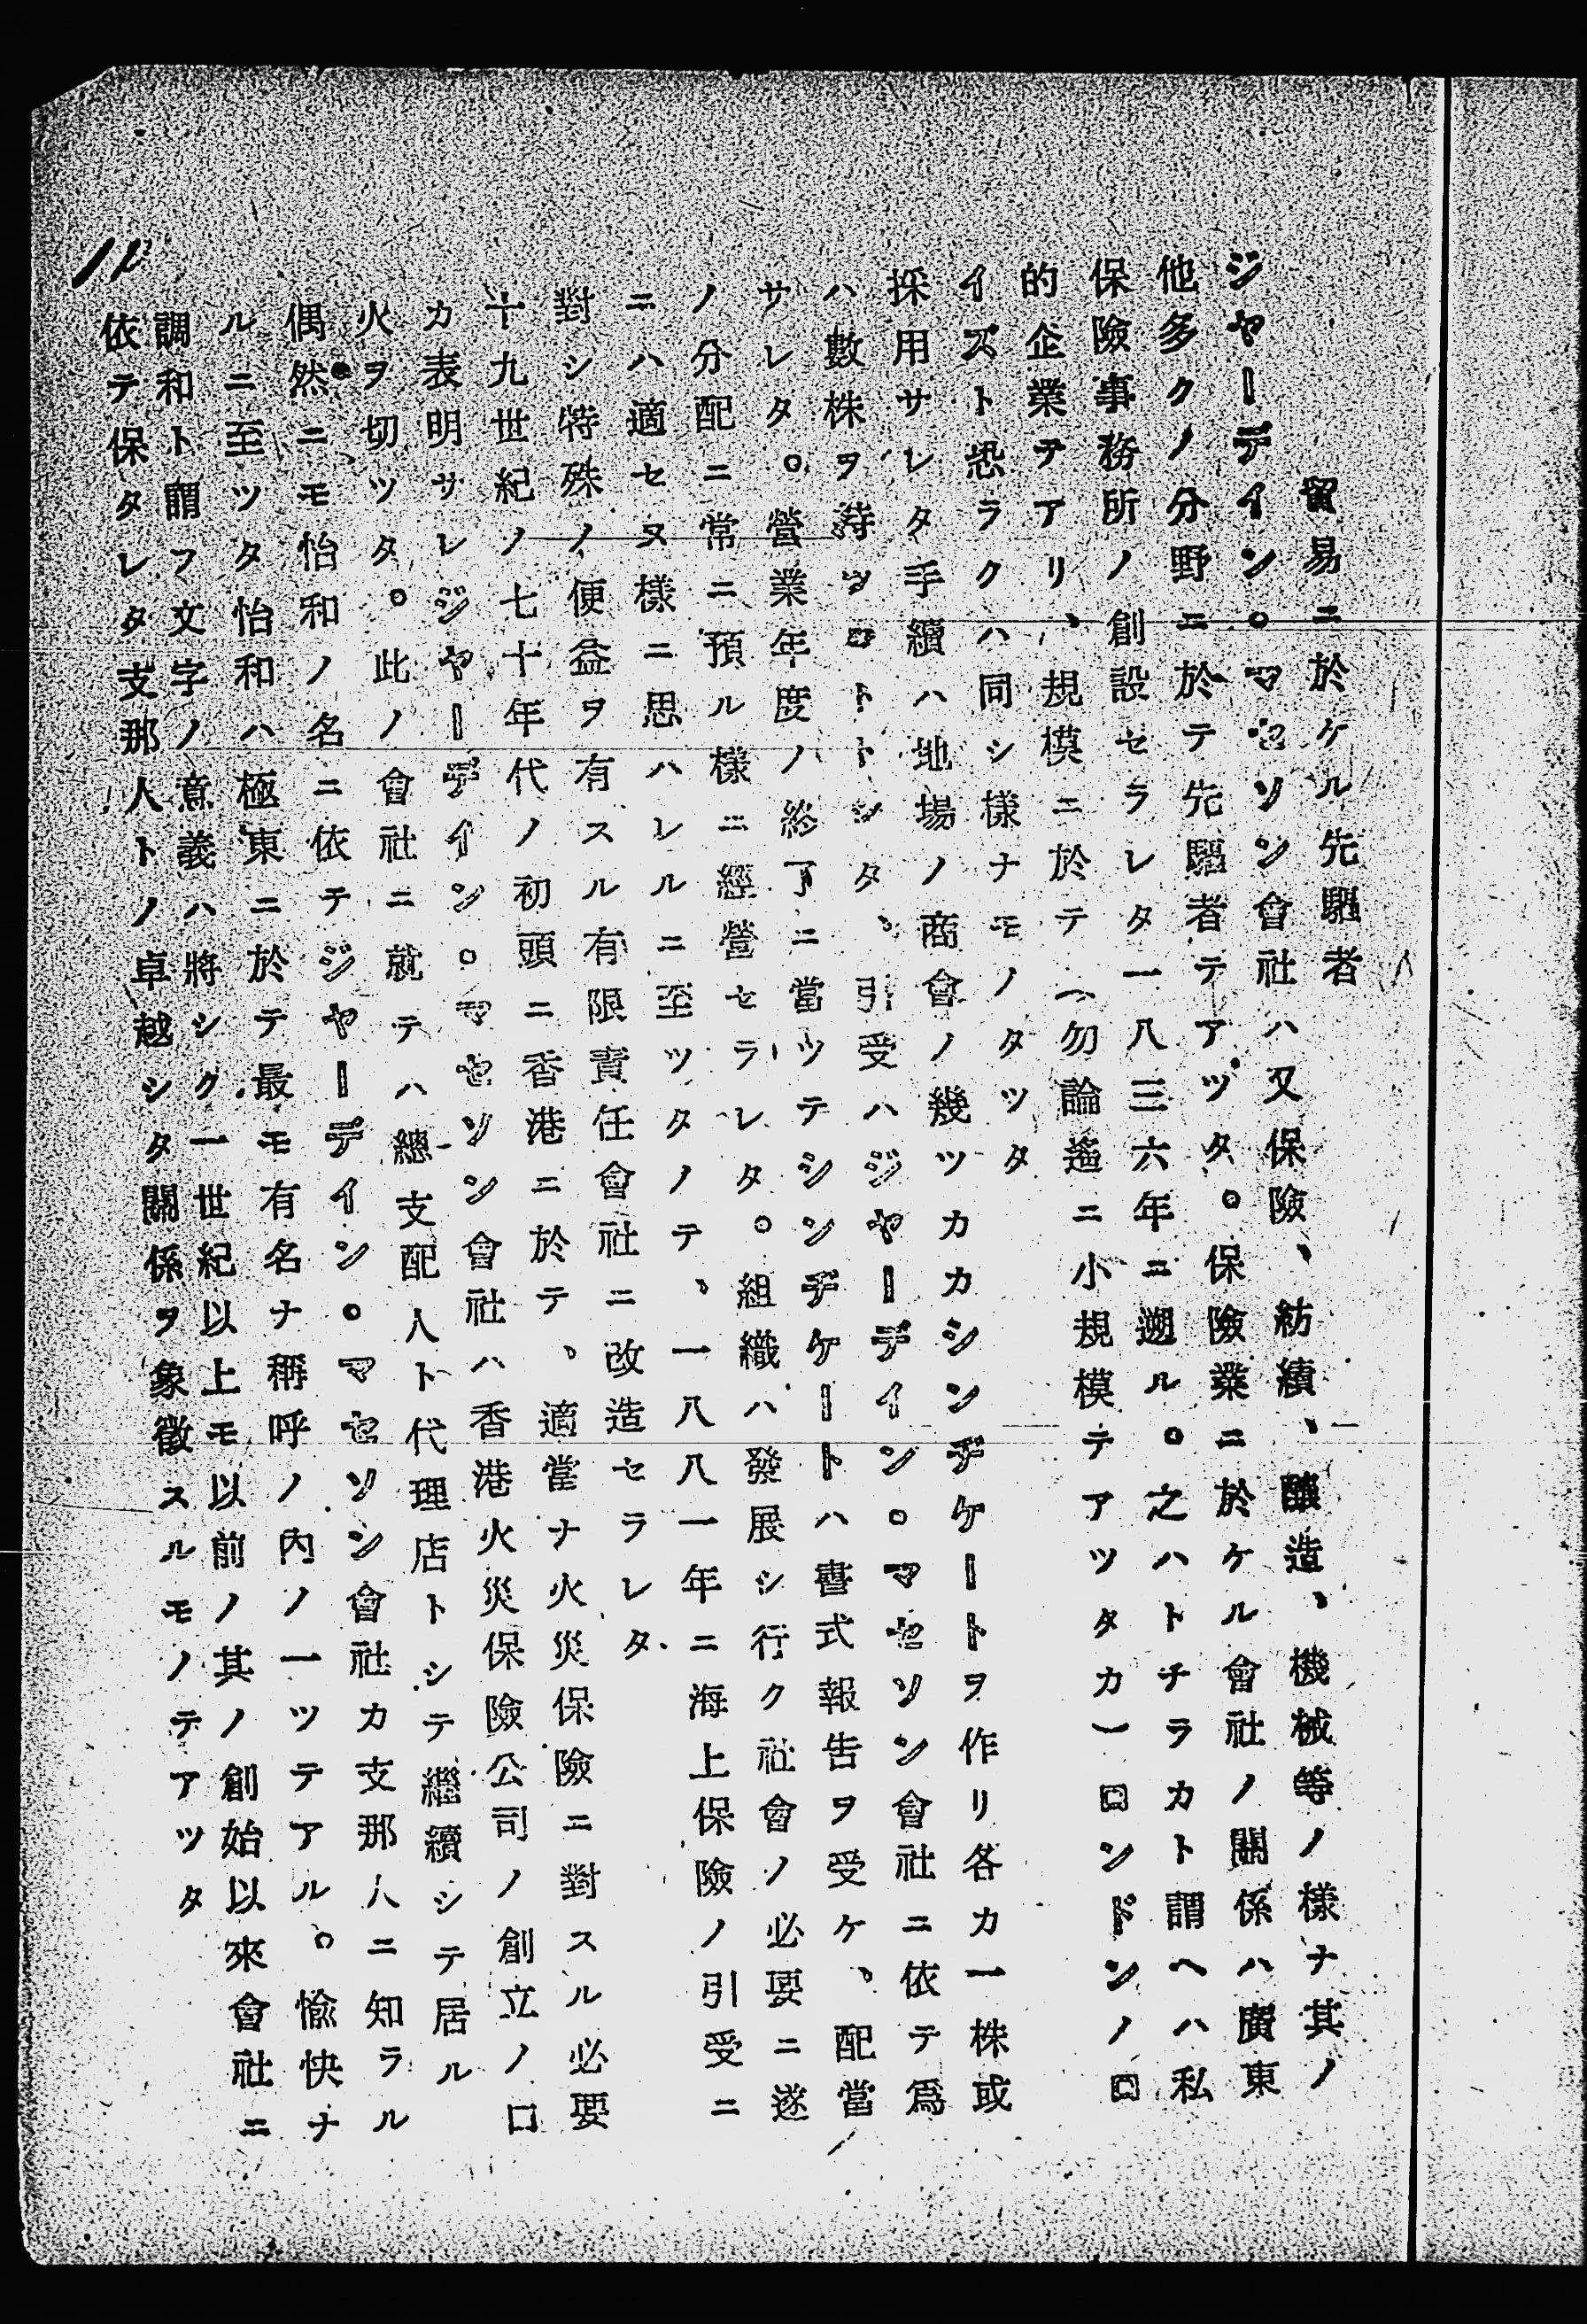 貿易ニ於ケル先驅者
ジヤーデイン。マセソン會社ハ又保險、紡績、釀造、機械等ノ樣ナ其ノ
他多クノ分野ニ於テ先驅者テアツタ。保險業ニ於ケル會社ノ關係ハ廣東
保險事務所ノ創設セラレタ一八三六年ニ遡ル。之ハトチラカト謂ヘハ私
的企業テアリ、規模ニ於テ（勿論遙ニ小規模テアツタカ）ロンドンノロ
イズト恐ラクハ同シ樣ナモノタツタ
採用サレタ手續ハ地場ノ商會ノ幾ツカカシンヂケートヲ作リ各カ一株或
ハ數株ヲ持ツコトトシタ、引受ハジヤーデイン。マセソン會社ニ依テ爲
サレタ。營業年度ノ終了ニ當ツテシンヂケートハ書式報告ヲ受ケ、配當
ノ分配ニ常ニ預ル樣ニ經營セラレタ。組織ハ發展シ行ク社會ノ必要ニ遂
ニハ適セヌ樣ニ思ハレルニ至ツタノテ、一八八一年ニ海上保險ノ引受ニ
對シ特殊ノ便益ヲ有スル有限責任會社ニ改造セラレタ
十九世紀ノ七十年代ノ初頭ニ香港ニ於テ、適當ナ火災保險ニ對スル必要
カ表明サレジヤーデイン。マセソン會社ハ香港火災保險公司ノ創立ノ口
火ヲ切ツタ。此ノ會社ニ就テハ總支配人ト代理店トシテ繼續シテ居ル
偶然ニモ怡和ノ名ニ依テジヤーデイン。マセソン會社カ支那人ニ知ラル
ルニ至ツタ怡和ハ極東ニ於テ最モ有名ナ稱呼ノ內ノ一ツテアル。愉快ナ
調和ト謂フ文字ノ意義ハ將シク一世紀以上モ以前ノ其ノ創始以來會社ニ
依テ保タレタ支那人トノ卓越シタ關係ヲ象徵スルモノテアツタ